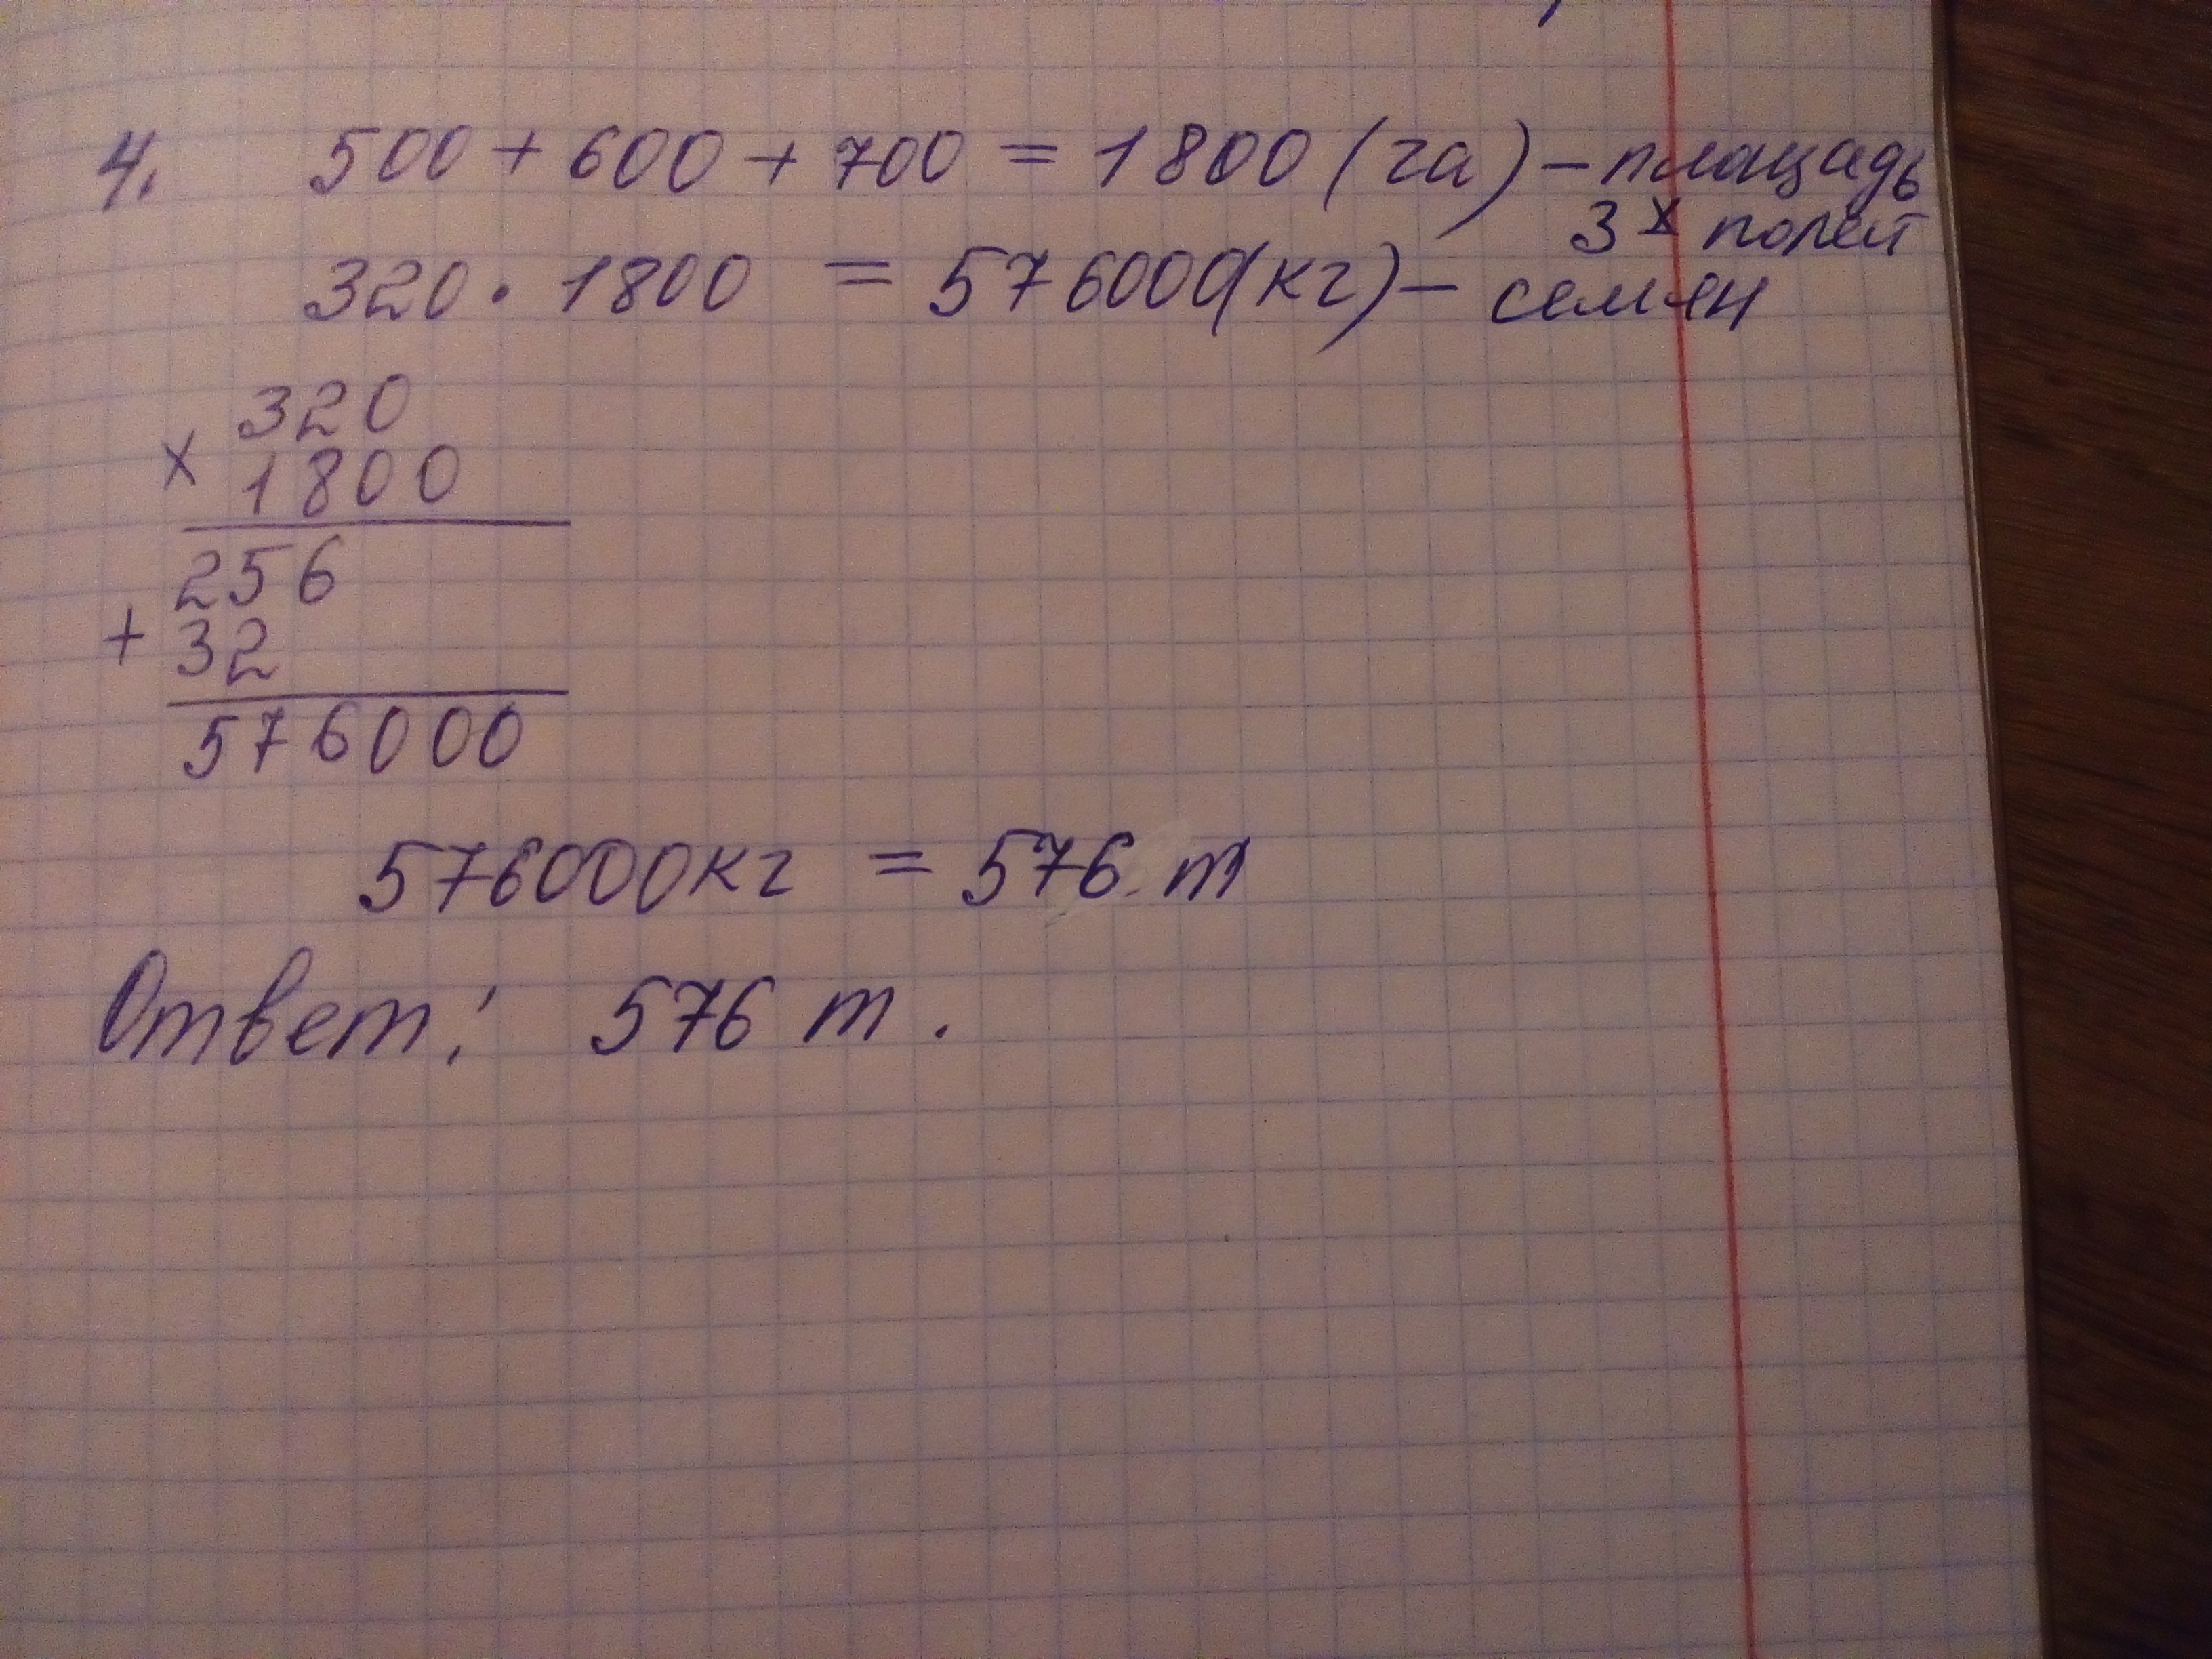 4. 500 + 600 + 700 = 1800 (га) – площадь
3х полей
320 · 1800 = 576000(кг) – семян
320
× 1800
256
+ 32
576000
576000кг = 576 т
Ответ: 576 т.